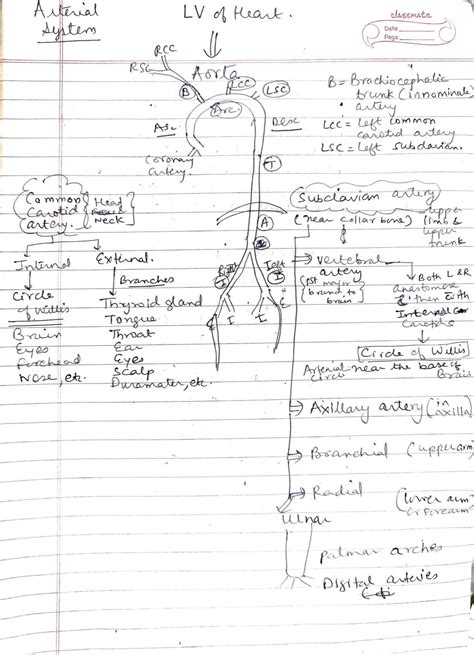 Arterial
System
LV of Heart.
classmate
Date
Page
RCC
RSC
Aorta
B
LCC
LSC
Arc
Asc
Desc
Coronary
artery.
T
A
B = Brachiocephalic
trunk (innominate
artery
LCC = Left common
carotid artery
LSC = Left subclavian.
Common
Carotid
artery.
Head
Neck
Internal
Circle
of Willis
Brain
Eyes
Forehead
Nose, etc.
External.
Branches
Thyroid gland
Tongue
Throat
Ear
Eyes
Scalp
Duramater, etc.
Right
I
Left
I
E
I
I
E
Subclavian artery
(near collar bone)
(upper
limb &
upper
trunk
Vertebral
artery
(Ist major
branch to
brain
Both L & R
Anastomose
& then with
Internal
Carotids
Circle of Willis
Arterial near the base of
Circle Brain
Axillary artery (in
axilla)
Branchial (upper arm)
Radial
(lower arm
or Forearm)
Ulnar
Palmar arches
Digital arteries